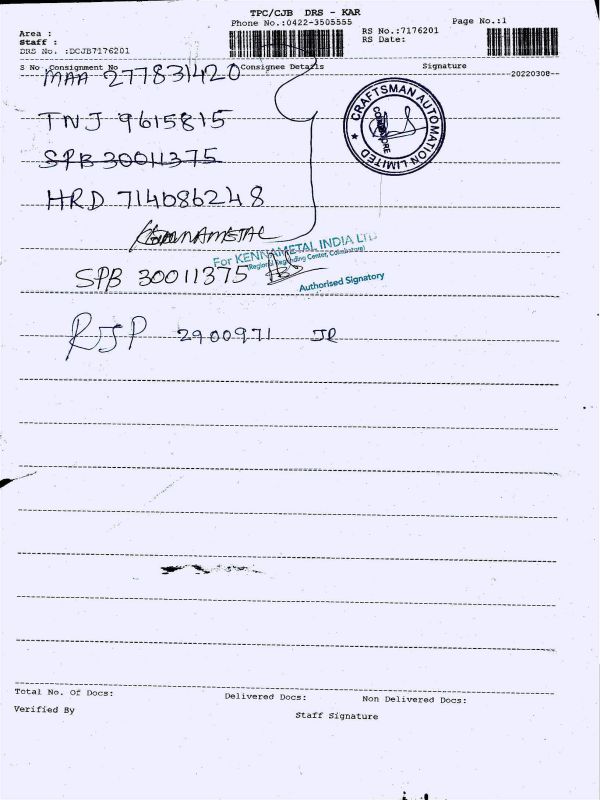 TPC/CJB DRS - KAR
Phone No.:0422-3505555
Page No.:1
Area :
Staff :
DRS No. :DCJB7176201
RS No.:7176201
RS Date:
S No Consignment No Consignee Details Signature
20220308
MAA 277831420
TNJ 9615815
SPB 30011375
HRD 714686248
KENNAMETAL
CRAFTSMAN AUTOMATION LIMITED
COIMBATORE
For KENNAMETAL INDIA LTD
(Regional Regrinding Center, Coimbatore)
SPB 30011375
Authorised Signatory
RJP 2900971
Total No. Of Docs: Delivered Docs: Non Delivered Docs:
Verified By Staff Signature